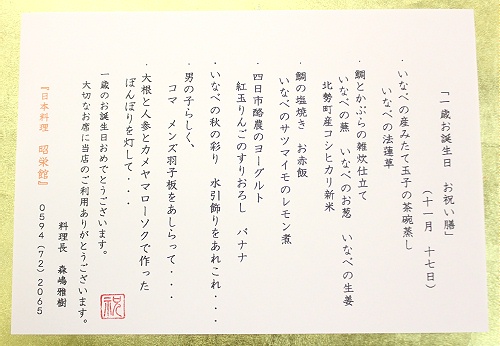 「一歳お誕生日　お祝い膳」
（十一月　十七日）
・いなべの産みたて玉子の茶碗蒸し
いなべの法蓮草
・鯛とかぶらの雑炊仕立て
いなべの蕪　いなべのお葱　いなべの生姜
北勢町産コシヒカリ新米
・鯛の塩焼き　お赤飯
いなべのサツマイモのレモン煮
・四日市酪農のヨーグルト
紅玉りんごのすりおろし　バナナ
・いなべの秋の彩り　水引飾りをあれこれ・・・
・男の子らしく、
コマ　メンズ羽子板をあしらって・・・
・大根と人参とカメヤマローソクで作った
ぼんぼりを灯して・・・
一歳のお誕生日おめでとうございます。
大切なお席に当店のご利用ありがとうございます。
料理長　森嶋雅樹
『日本料理　昭栄館』　0594（72）2065
祝